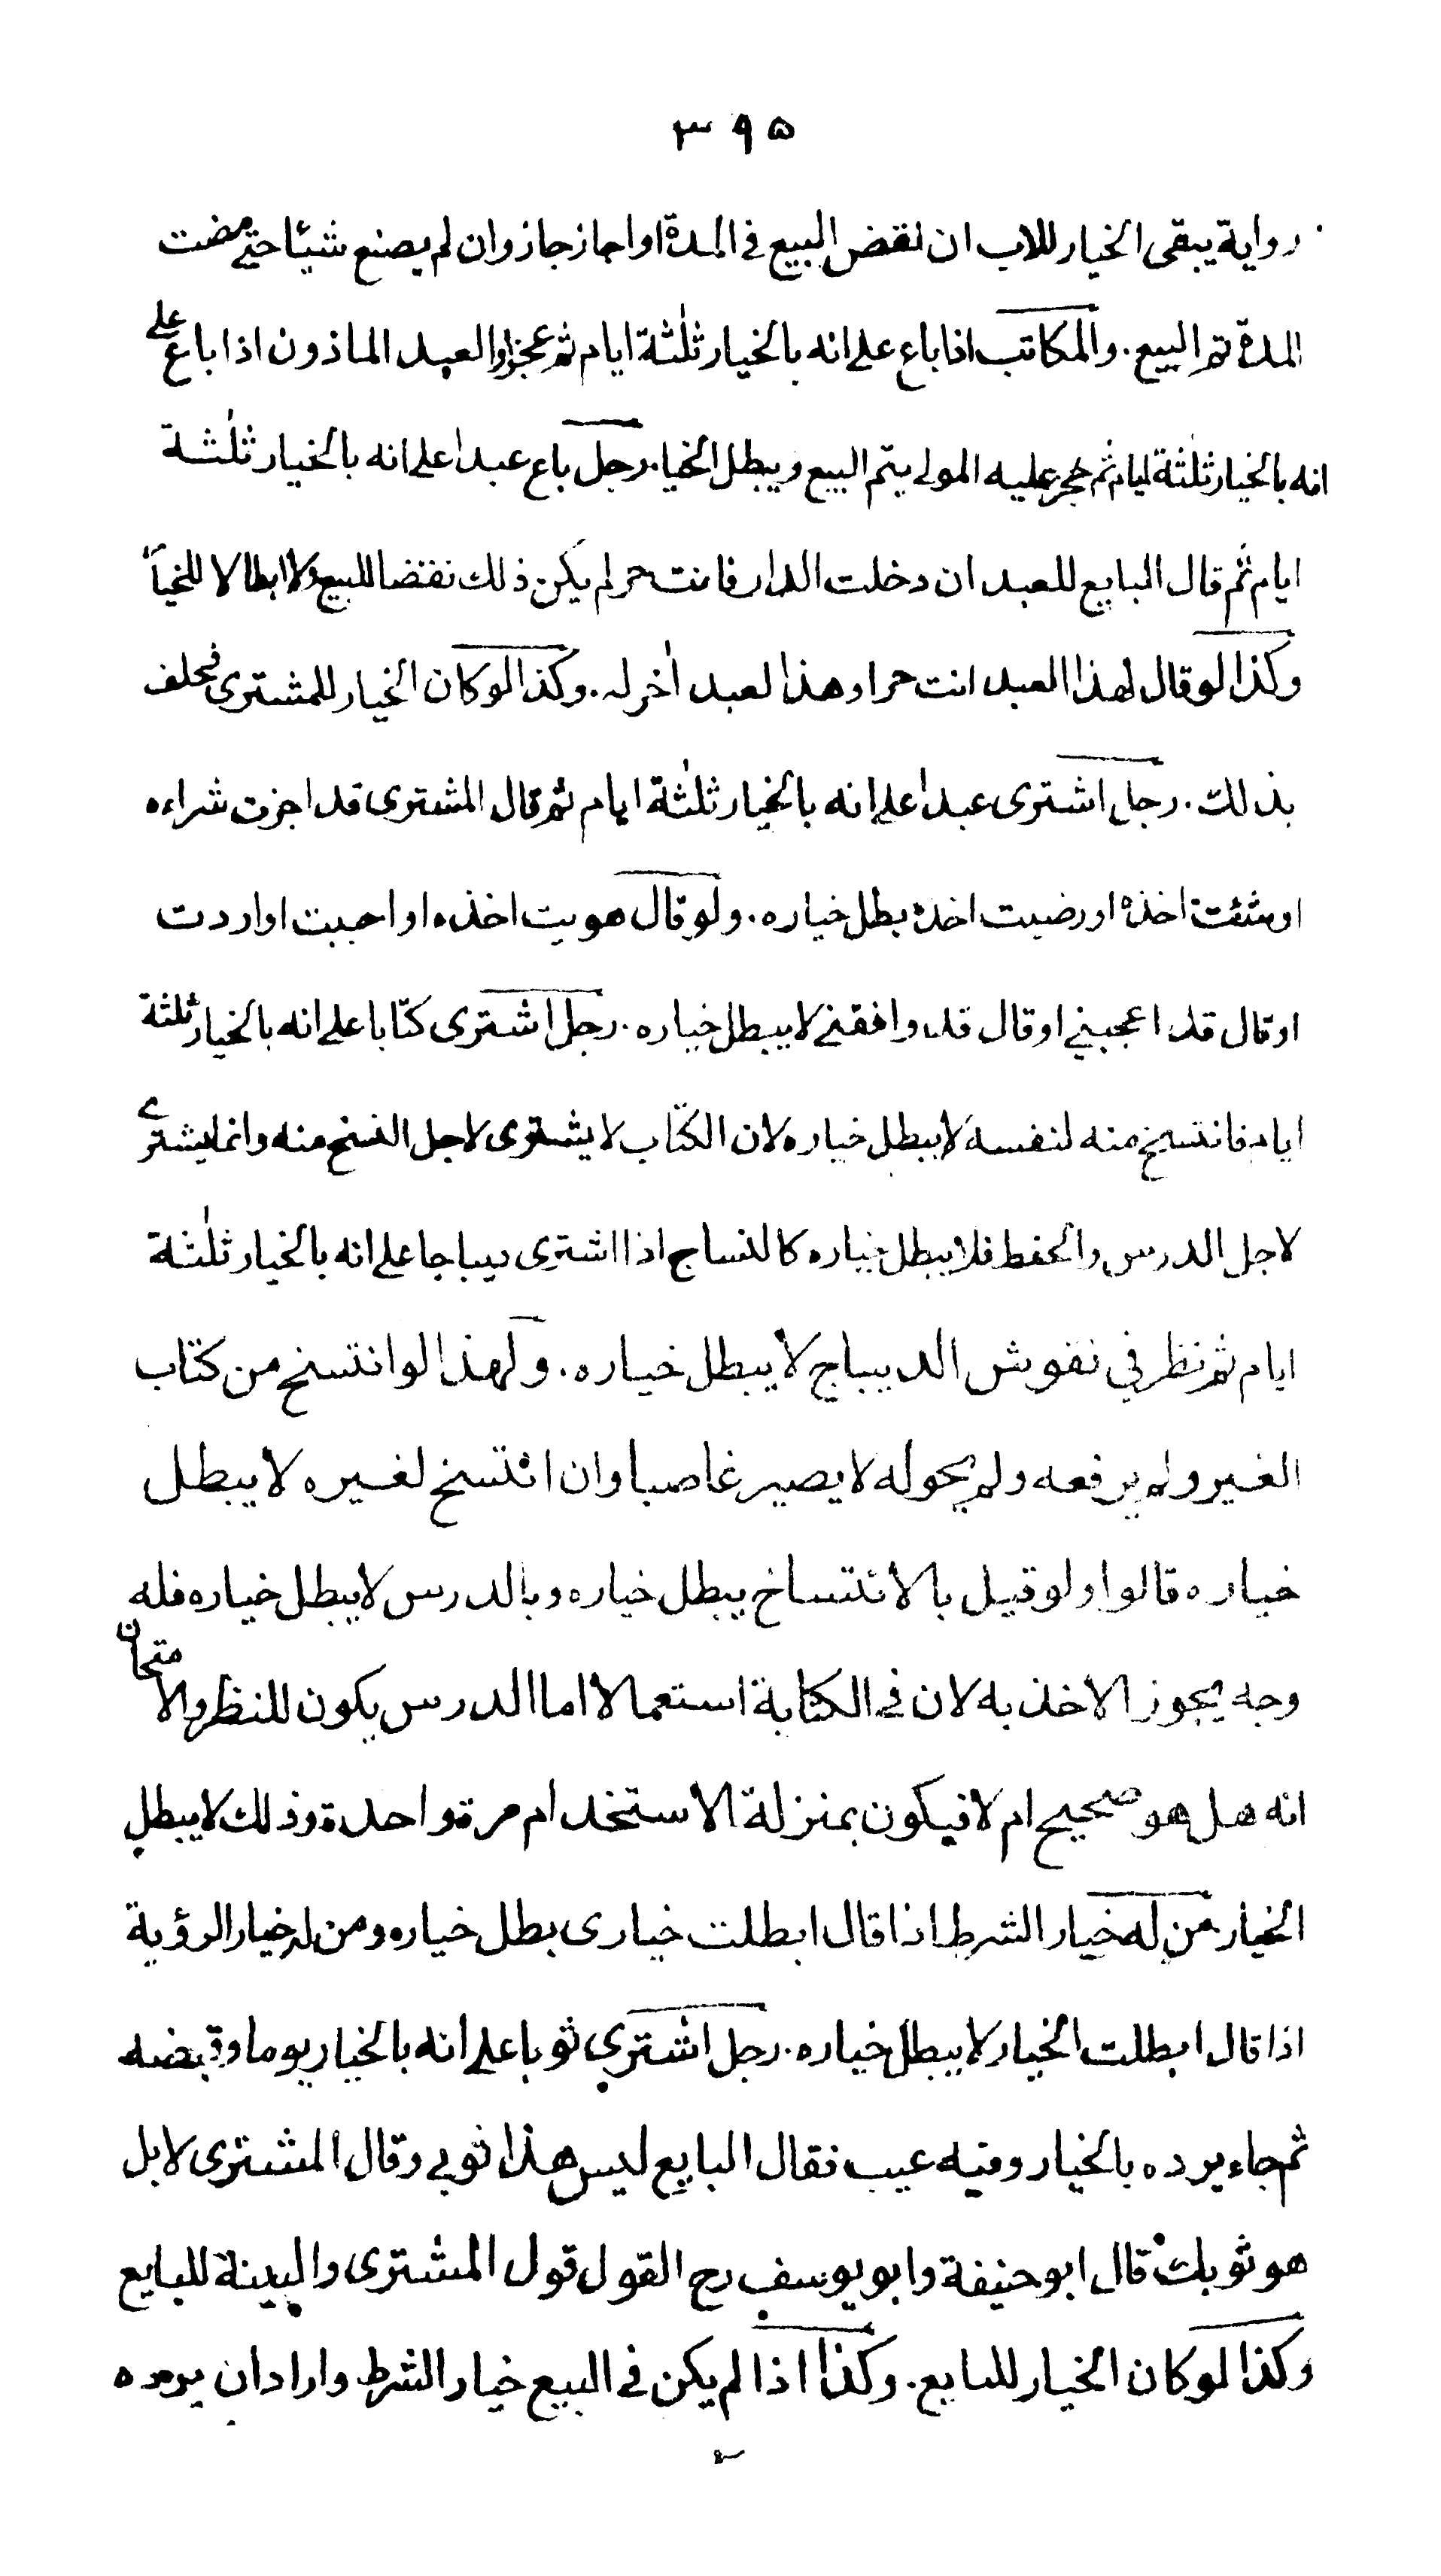 ۳۹۵
رواية يبقى الخيار للاب ان نقض البيع في المدة او اجاز جاز وان لم يصنع شيئا حتى مضت
المدة تم البيع. والمكاتب اذا باع على انه بالخيار ثلٰثة ايام ثم عجز او العبد الماذون اذا باع على
انه بالخيار ثلٰثة ايام ثم حجر عليه المولى يتم البيع ويبطل الخيا. رجل باع عبدا على انه بالخيار ثلٰثة
ايام ثم قال البايع للعبد ان دخلت الدار فانت حر لم يكن ذلك نقضا للبيع ولا ابطالا للخيا
وكذا لو قال لهذا العبد انت حر او هذا لعبد اٰخر له. وكذا لو كان الخيار للمشترى فحلف
بذلك. رجل اشترى عبدا على انه بالخيار ثلٰثة ايام ثم قال المشترى قد اجزت شراءه
او شئت اخذه او رضيت اخذه بطل خياره. ولو قال هويت اخذه او احببت او اردت
او قال قد اعجبني او قال قد وافقني لا يبطل خياره. رجل اشترى كتابا على انه بالخيار ثلثة
ايام فانتسخ منه لنفسه لا يبطل خياره لان الكتاب لا يشترى لاجل النسخ منه وانما يشترى
لاجل الدرس والحفظ فلا يبطل خياره كالنساج اذا اشترى ديباجا على انه بالخيار ثلٰثة
ايام ثم نظر في نقوش الديباج لا يبطل خياره. ولهذا لو انتسخ من كتاب
الغير ولم يرفعه ولم يحوله لا يصير غاصبا وان انتسخ لغيره لا يبطل
خياره قالوا ولو قيل بالانتساخ يبطل خياره وبالدرس لا يبطل خياره فله
وجه يجوز الاخذ به لان في الكتابة استعمالا اما الدرس يكون للنظر والامتحان
انه هل هو صحيح ام لا فيكون بمنزلة الاستخدام مرة واحدة وذلك لا يبطل
الخيار من له خيار الشرط اذا قال ابطلت خيارى بطل خياره ومن له خيار الرؤية
اذا قال ابطلت الخيار لا يبطل خياره. رجل اشترى ثوبا على انه بالخيار يوما وقبضه
ثم جاء يرده بالخيار وفيه عيب فقال البايع ليس هذا ثوبي وقال المشترى لا بل
هو ثوبك قال ابو حنيفة وابو يوسف رح القول قول المشترى والبينة للبايع
وكذا لو كان الخيار للبايع. وكذا اذا لم يكن في البيع خيار الشرط واراد ان يرده